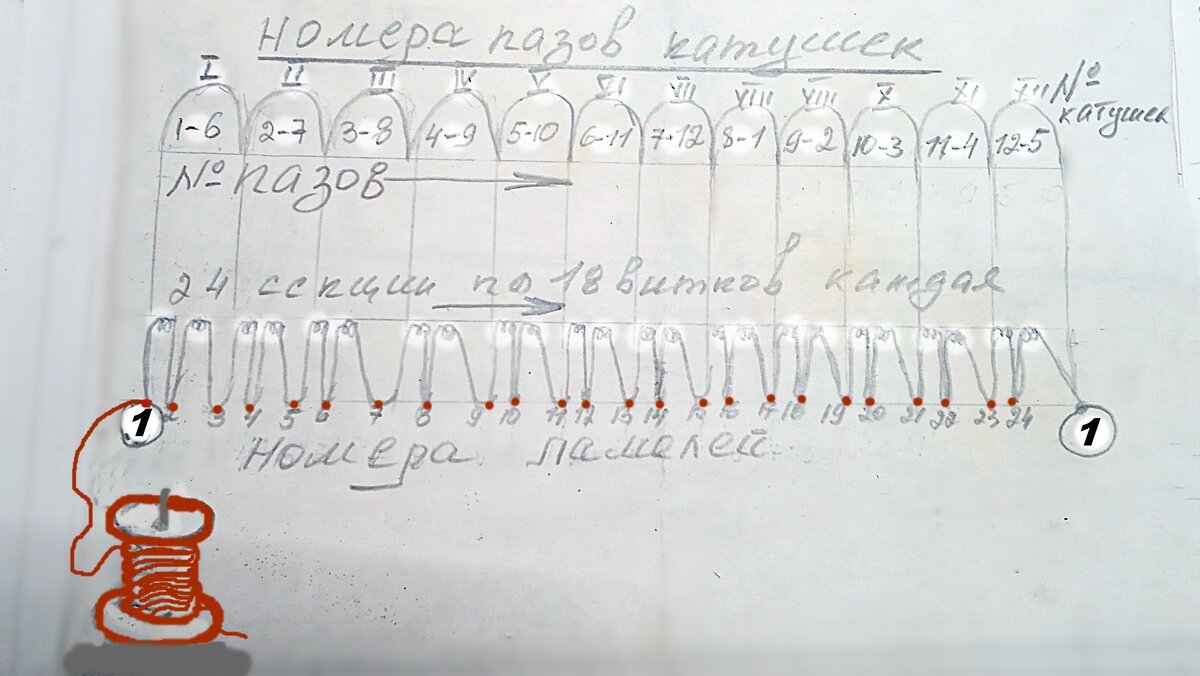 Номера пазов катушек
I II III IV V VI VII VIII VIII X XI XII №
катушек
1-6 2-7 3-8 4-9 5-10 6-11 7-12 8-1 9-2 10-3 11-4 12-5
№ пазов
24 секции по 18 витков каждая
1 2 3 4 5 6 7 8 9 10 11 12 13 14 15 16 17 18 19 20 21 22 23 24 1
Номера ламелей